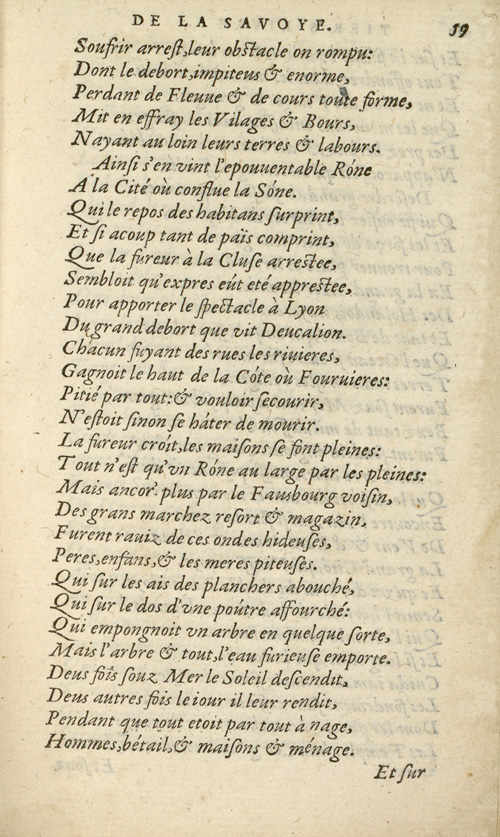 DE LA SAVOYE. 59
Soufrir arrest, leur obstacle on rompu:
Dont le debort, impiteus & enorme,
Perdant de Fleuue & de cours toute forme,
Mit en effray les Vilages & Bours,
Nayant au loin leurs terres & labours.
Ainsi s'en vint l'epouuentable Róne
A la Cité où conflue la Sóne.
Qui le repos des habitans surprint,
Et si acoup tant de païs comprint,
Que la fureur à la Cluse arrestee,
Sembloit qu'expres eút eté apprestee,
Pour apporter le spectacle à Lyon
Du grand debort que vit Deucalion.
Chacun fuyant des rues les riuieres,
Gagnoit le haut de la Cóte où Fouruieres:
Pitié par tout: & vouloir secourir,
N'estoit sinon se háter de mourir.
La fureur croít, les maisons se font pleines:
Tout n'est qu'vn Róne au large par les pleines:
Mais ancor' plus par le Fausbourg voisin,
Des grans marchez resort & magazin,
Furent rauiz de ces ondes hideuses,
Peres, enfans, & les meres piteuses.
Qui sur les ais des planchers abouché,
Qui sur le dos d'vne poútre affourché:
Qui empongnoit vn arbre en quelque sorte,
Mais l'arbre & tout, l'eau furieuse emporte.
Deus fois souz Mer le Soleil descendit,
Deus autres fois le iour il leur rendit,
Pendant que tout etoit par tout à nage,
Hommes, bétail, & maisons & ménage.
Et sur